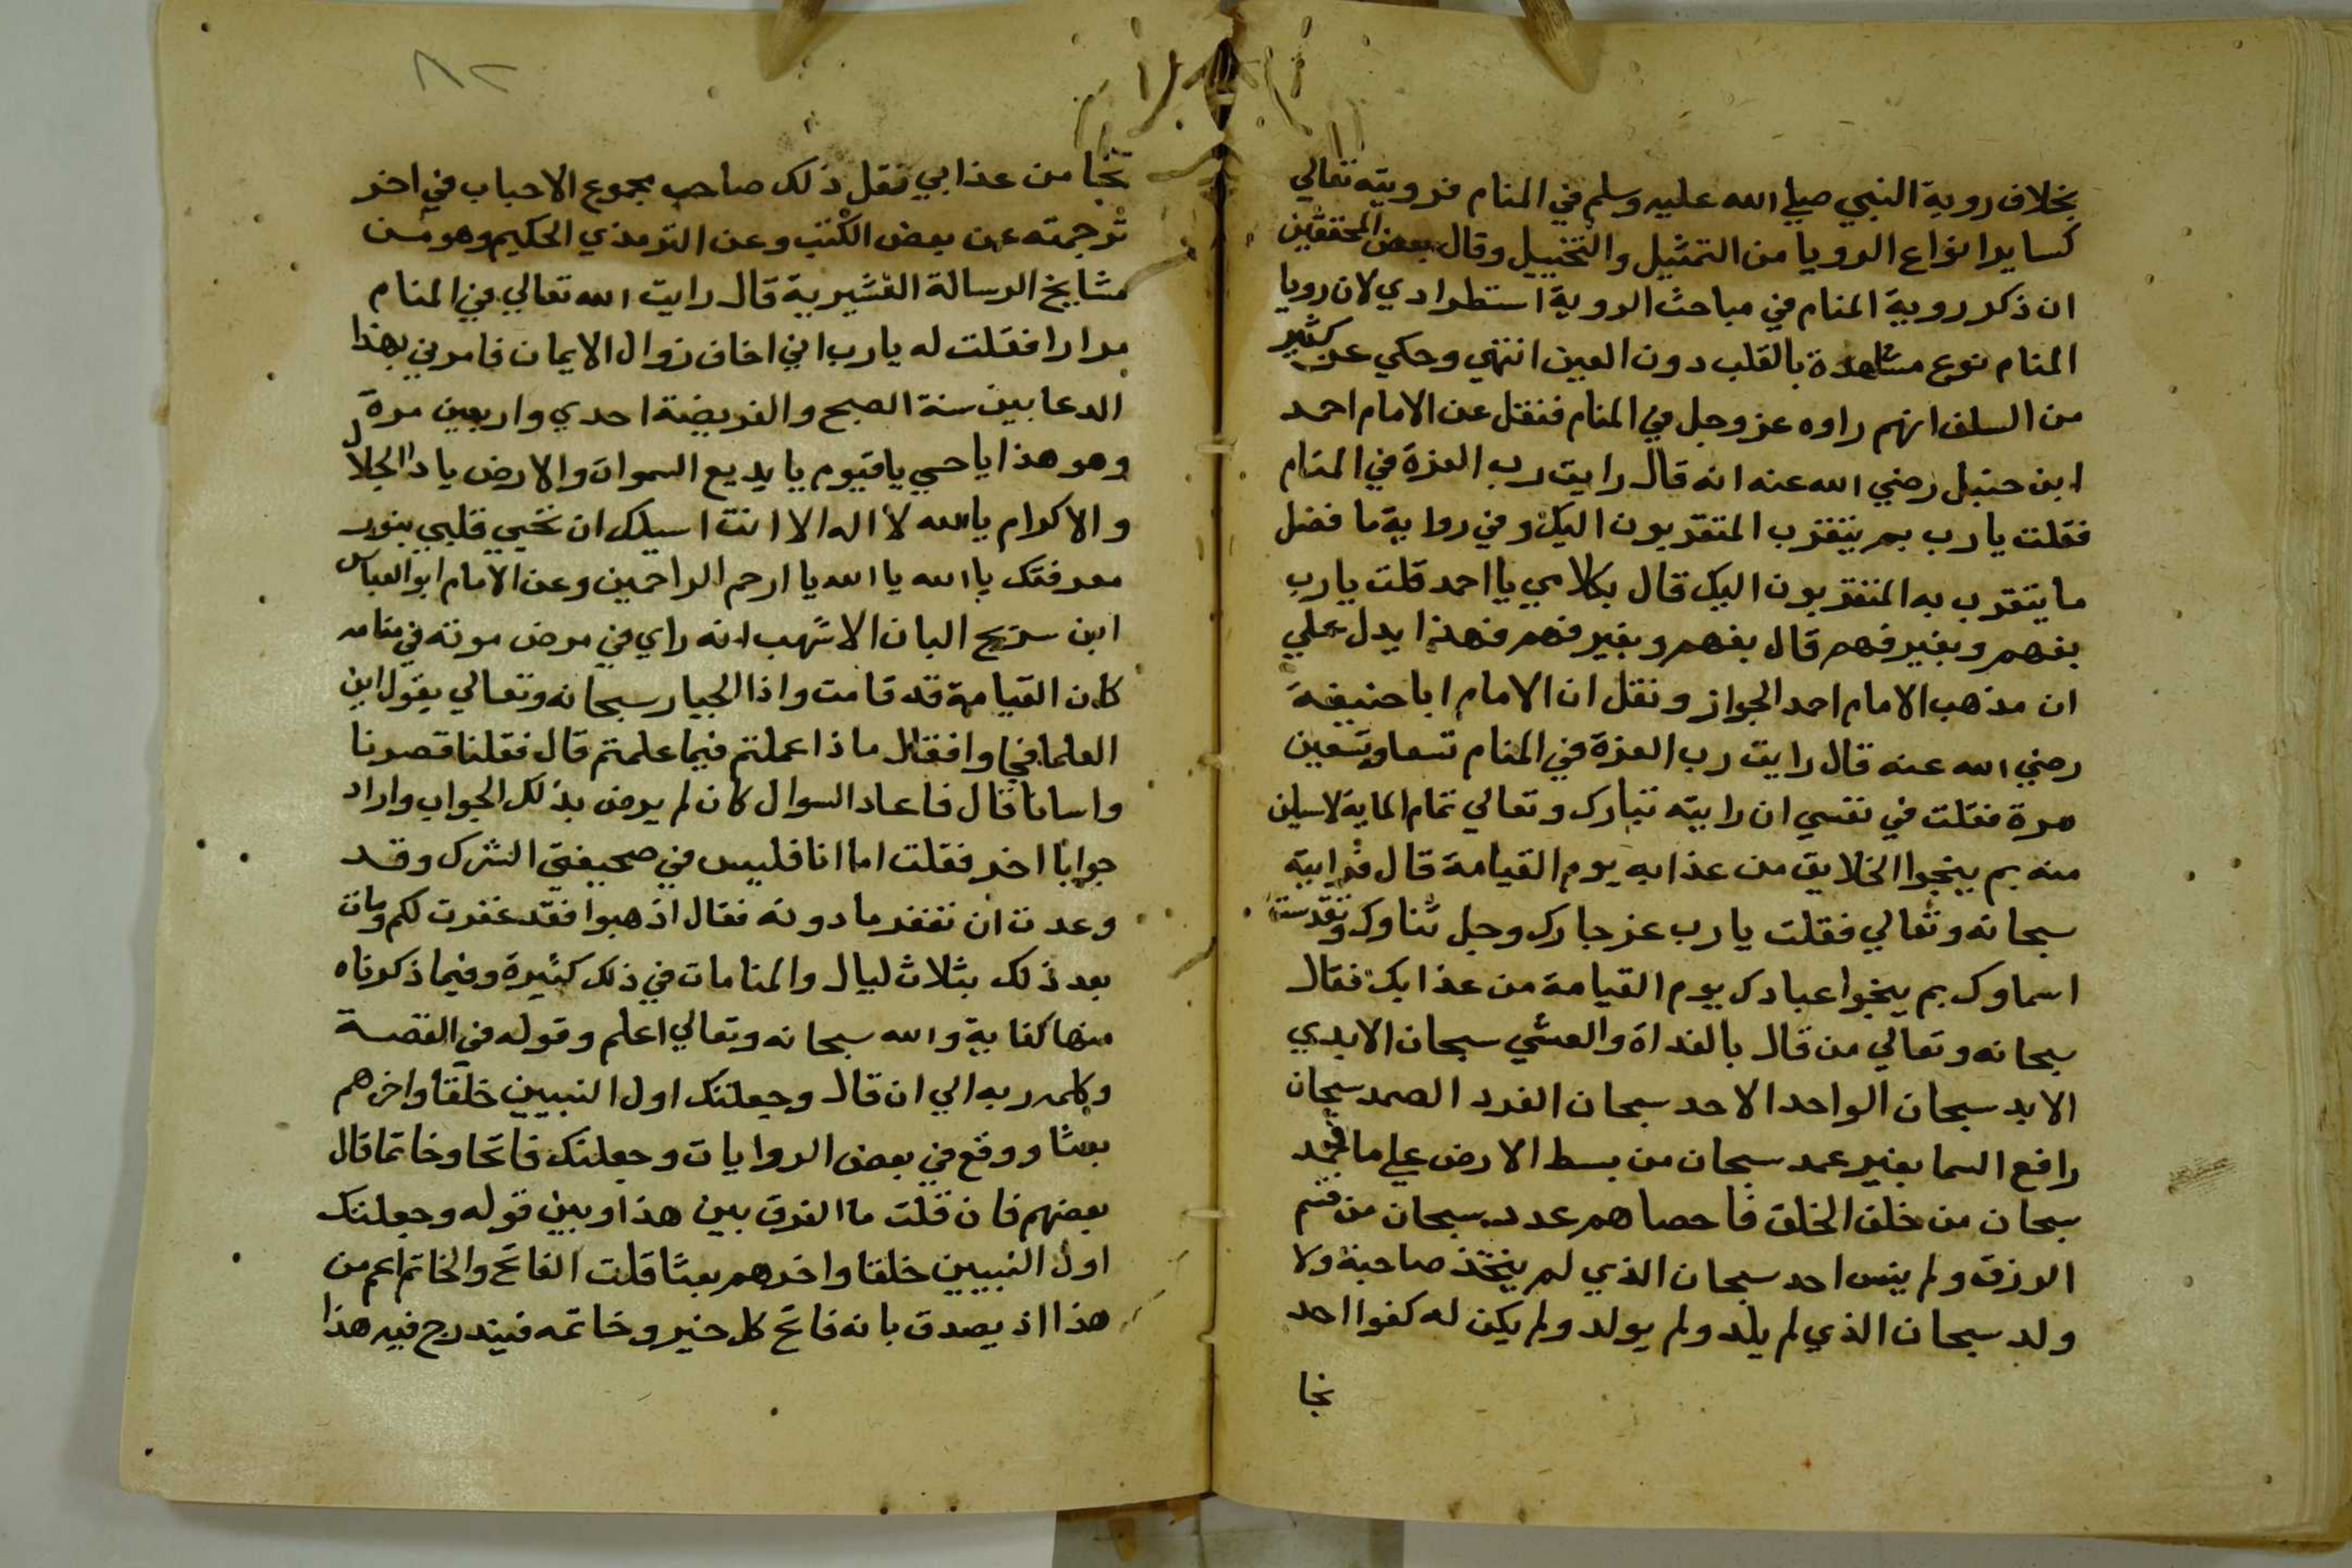 بخلاف روية النبي صلي الله عليه وسلم في المنام فرويته تعالي
كساير انواع الرويا من التمثيل والتخييل وقال بعض المحققين
ان ذكر روية المنام في مباحث الروية استطرادي لان رويا
المنام نوع مشاهدة بالقلب دون العين انتهي وحكي عن كثير
من السلف انهم راوه عز وجل في المنام فنقل عن الامام احمد
ابن حنبل رضي الله عنه انه قال رايت رب العزة في المنام
فقلت يارب بم يتقرب المتقربون اليك وفي رواية ما فضل
ما يتقرب به المتقربون اليك قال بكلامي يا احمد قلت يارب
بفهم وبغير فهم قال بفهم وبغير فهم فهذا يدل علي
ان مذهب الامام احمد الجواز ونقل ان الامام ابا حنيفة
رضي الله عنه قال رايت رب العزة في المنام تسعا وتسعين
مرة فقلت في نفسي ان رايته تبارك وتعالي تمام الماية لاسيلن
منه بم ينجوا الخلايق من عذابه يوم القيامة قال فرايته
سبحانه وتعالي فقلت يارب عز جارك وجل ثناوك وتقدست
اسماوك بم ينجوا عبادك يوم القيامة من عذابك فقال
سبحانه وتعالي من قال بالغداة والعشي سبحان الابدي
الابد سبحان الواحد الاحد سبحان الفرد الصمد سبحان
رافع السما بغير عمد سبحان من بسط الارض علي ما جمد
سبحان من خلق الخلق فاحصاهم عدد سبحان من قسم
الرزق ولم ينس احد سبحان الذي لم يتخذ صاحبة ولا
ولد سبحان الذي لم يلد ولم يولد ولم يكن له كفوا احد
نجا
٨٢
نجا من عذابي نقل ذلك صاحب مجموع الاحباب في اخر
ترجمته عن بعض الكتب وعن الترمذي الحكيم وهو من
مشايخ الرسالة القشيرية قال رايت الله تعالي في المنام
مرارا فقلت له يارب اني اخاف زوال الايمان فامرني بهذا
الدعا بين سنة الصبح والفريضة احدي واربعين مرة
وهو هذا ياحي ياقيوم يا بديع السموات والارض ياذا الجلال
والاكرام يا الله لا اله الا انت اسيلك ان تحيي قلبي بنور
معرفتك يا الله يا الله يا ارحم الراحمين وعن الامام ابو العباس
ابن سريج الباز الاشهب انه راي في مرض موته في منامه
كان القيامة قد قامت واذا الجبار سبحانه وتعالي يقول اين
العلما فجاوا فقال ماذا عملتم فيما علمتم قال فقلنا قصرنا
واسانا قال فاعاد السوال كان لم يرض بذلك الجواب واراد
جوابا اخر فقلت اما انا فليس في صحيفتي الشرك وقد
وعدت ان تغفر ما دونه فقال اذهبوا فقد غفرت لكم ومات
بعد ذلك بثلاث ليال والمنامات في ذلك كثيرة وفيما ذكرناه
منها كفاية والله سبحانه وتعالي اعلم وقوله في القصة
وكلمه ربه الي ان قال وجعلتك اول النبيين خلقا واخرهم
بعثا ووقع في بعض الروايات وجعلتك فاتحا وخاتما قال
بعضهم فان قلت ما الفرق بين هذا وبين قوله وجعلتك
اول النبيين خلقا واخرهم بعثا قلت الفاتح والخاتم اعم من
هذا اذ يصدق بانه فاتح كل خير وخاتمه فيندرج فيه هذا